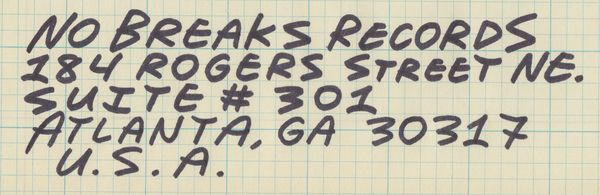 NO BREAKS RECORDS
184 ROGERS STREET NE.
SUITE # 301
ATLANTA, GA 30317
U.S.A.